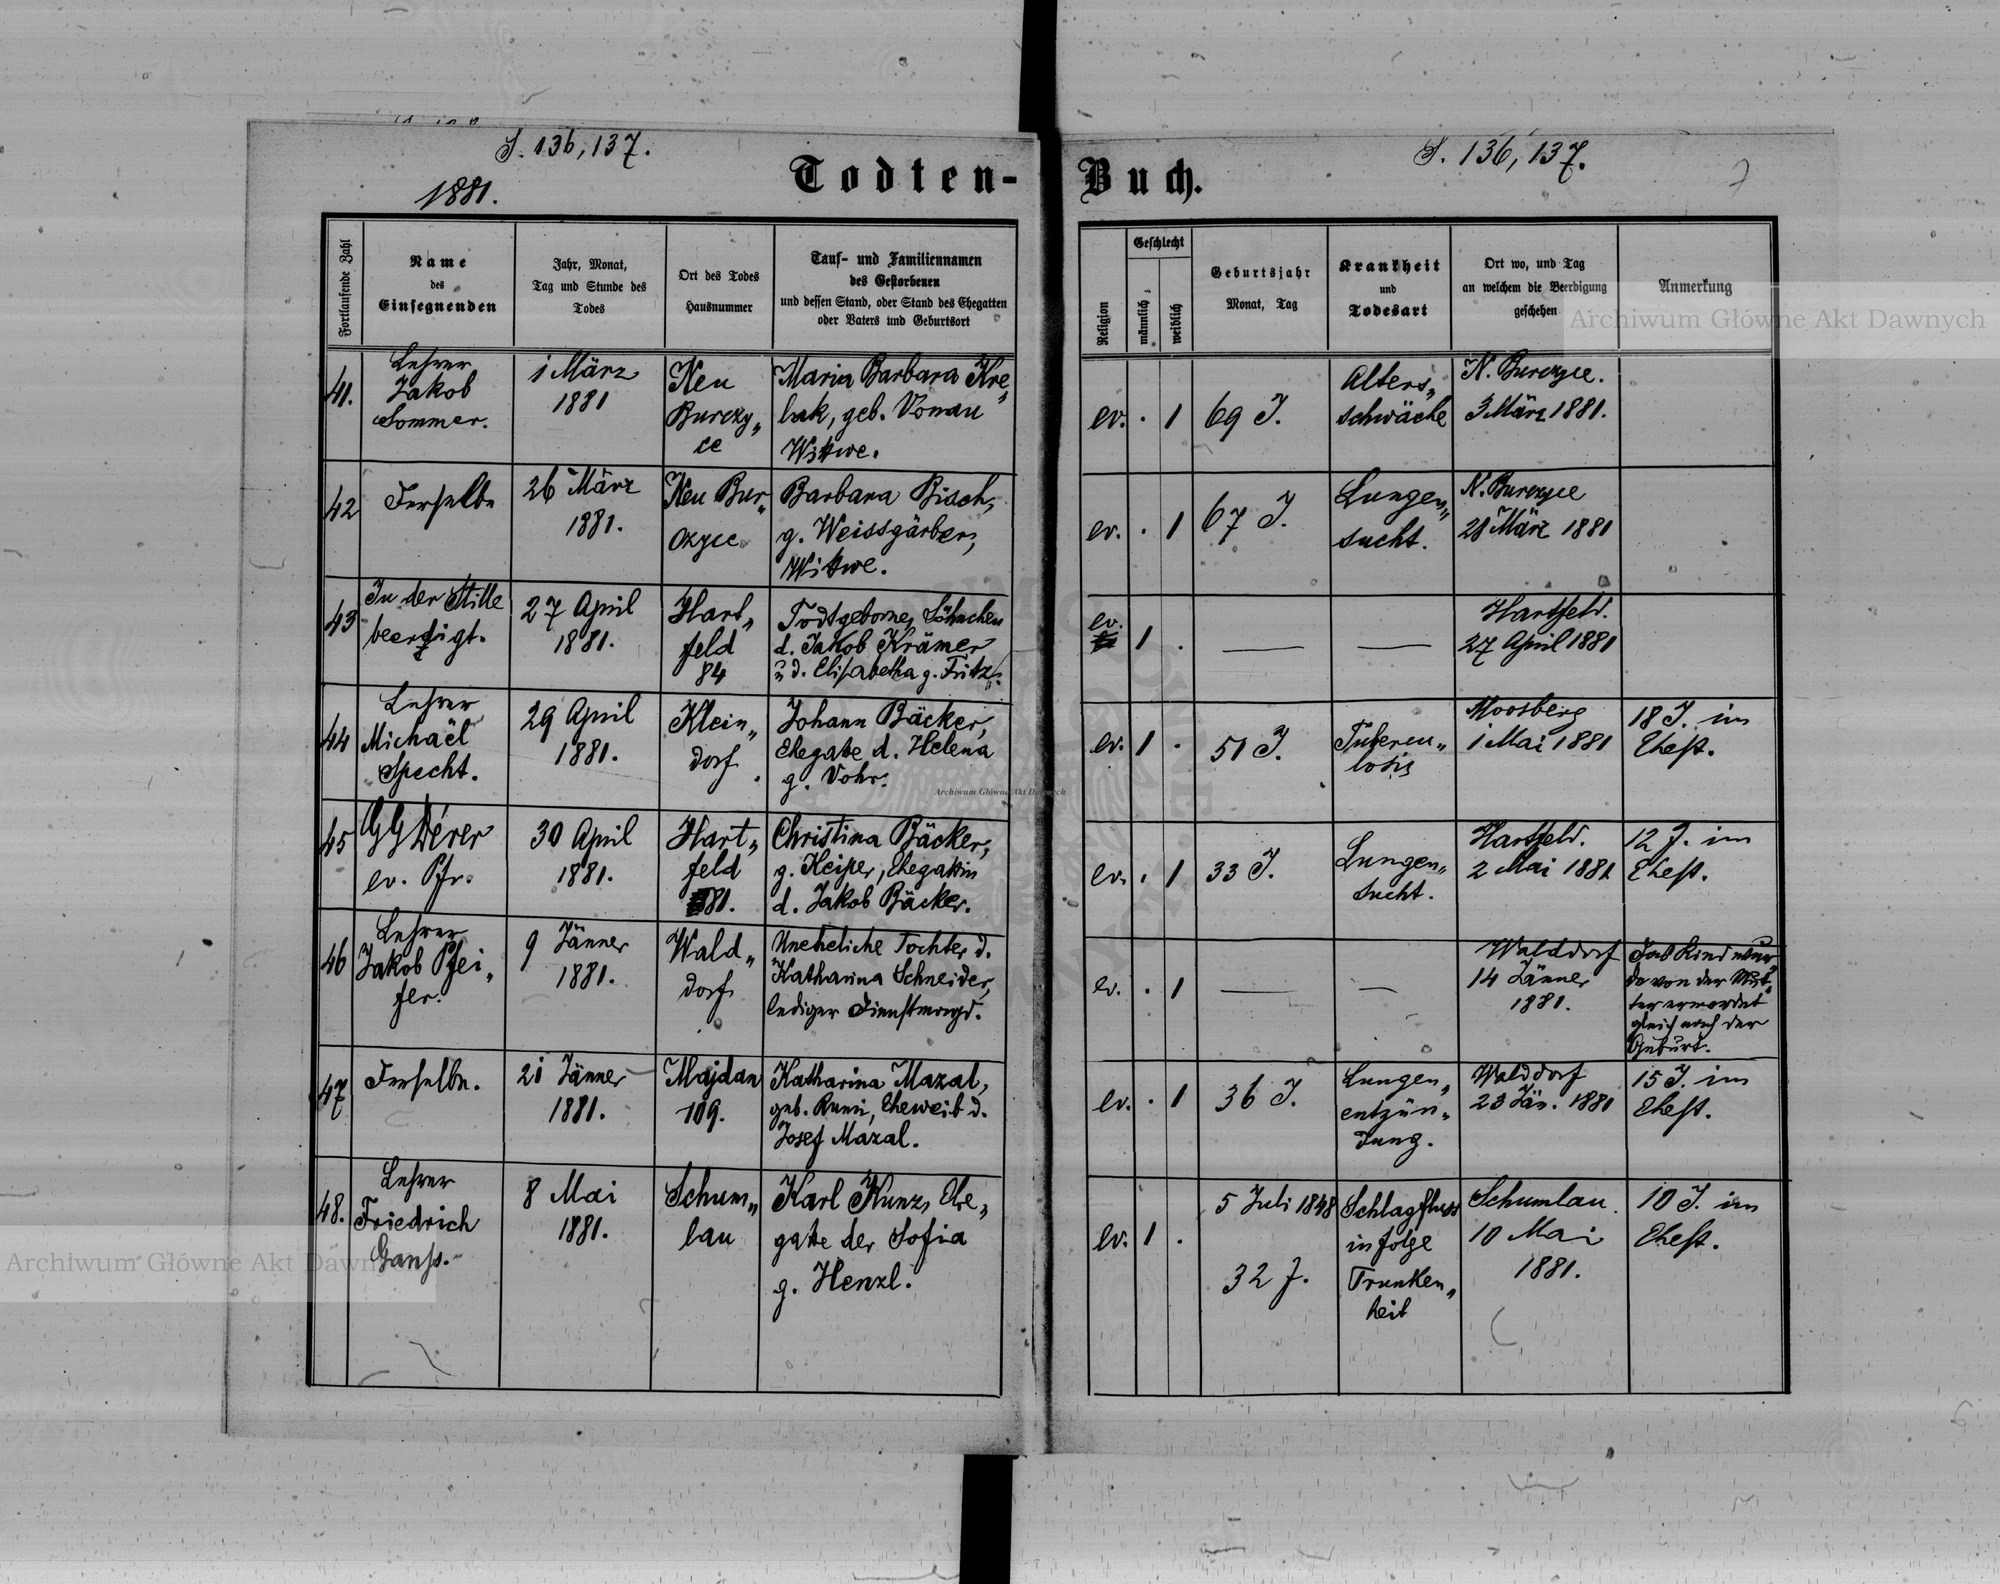 S. 136, 137.
1881.
Todten-
Fortlaufende Zahl
Name
des
Einsegnenden
Jahr, Monat,
Tag und Stunde des
Todes
Ort des Todes
Hausnummer
Tauf- und Familiennamen
des Gestorbenen
und dessen Stand, oder Stand des Ehegatten
oder Vaters und Geburtsort
41.
Lehrer
Jakob
Sommer.
1 März
1881
Neu
Burczy„
ce
Maria Barbara Kre„
bak, geb. Vonau
Wittwe.
42
Derselbe
26 März
1881.
Neu Bur„
czyce
Barbara Bisch,
g. Weissgärber,
Wittwe.
43
In der Stille
beerdigt.
27 April
1881.
Hart„
feld
84
Todtgebornes Söhnchen
d. Jakob Krämer
u d. Elisabetha g. Fritz.
44
Lehrer
Michael
Specht.
29 April
1881.
Klein„
dorf
Johann Bäcker,
Ehegatte d. Helena
g. Vohr.
45
GG Dérer
ev. Pfr.
30 April
1881.
Hart„
feld
81.
Christina Bäcker,
g. Keiper, Ehegattin
d. Jakob Bäcker.
46
Lehrer
Jakob Pfei„
fer.
9 Jänner
1881.
Wald„
dorf
Uneheliche Tochter d.
Katharina Schneider,
lediger Dienstmagd.
47
Derselbe.
21 Jänner
1881.
Majdan
109.
Katharina Mazal,
geb. Rumi, Eheweib d.
Josef Mazal.
48.
Lehrer
Friedrich
Ganss.
8 Mai
1881.
Schum„
lau
Karl Kunz, Ehe„
gatte der Sofia
g. Henzl.
S. 136, 137.
7
Buch.
Religion
Geschlecht
männlich
weiblich
Geburtsjahr
Monat, Tag
Krankheit
und
Todesart
Ort wo, und Tag
an welchem die Beerdigung
geschehen
Anmerkung
ev. . 1
69 J.
Alters„
schwäche
N. Burczyce.
3 März 1881.
ev. . 1
67 J.
Lungen„
sucht.
N. Burczyce
28 März 1881
ev.
1 .
Hartfeld.
27 April 1881
ev. 1 .
51 J.
Tubercu„
losis
Moosberg
1 Mai 1881
18 J. im
Ehest.
ev. . 1
33 J.
Lungen„
sucht.
Hartfeld.
2 Mai 1881
12 J. im
Ehest.
ev. . 1
Walddorf
14 Jänner
1881.
Das Kind wur„
de von der Mut„
ter ermordet
gleich nach der
Geburt.
ev. . 1
36 J.
Lungen„
entzün„
dung.
Walddorf
23 Jän. 1881
15 J. im
Ehest.
ev. 1 .
5 Juli 1848
32 J.
Schlagfluss
in folge
Trunken„
heit
Schumlau.
10 Mai
1881.
10 J. im
Ehest.
Archiwum Główne Akt Dawnych
Archiwum Główne Akt Dawnych
Archiwum Główne Akt Dawnych